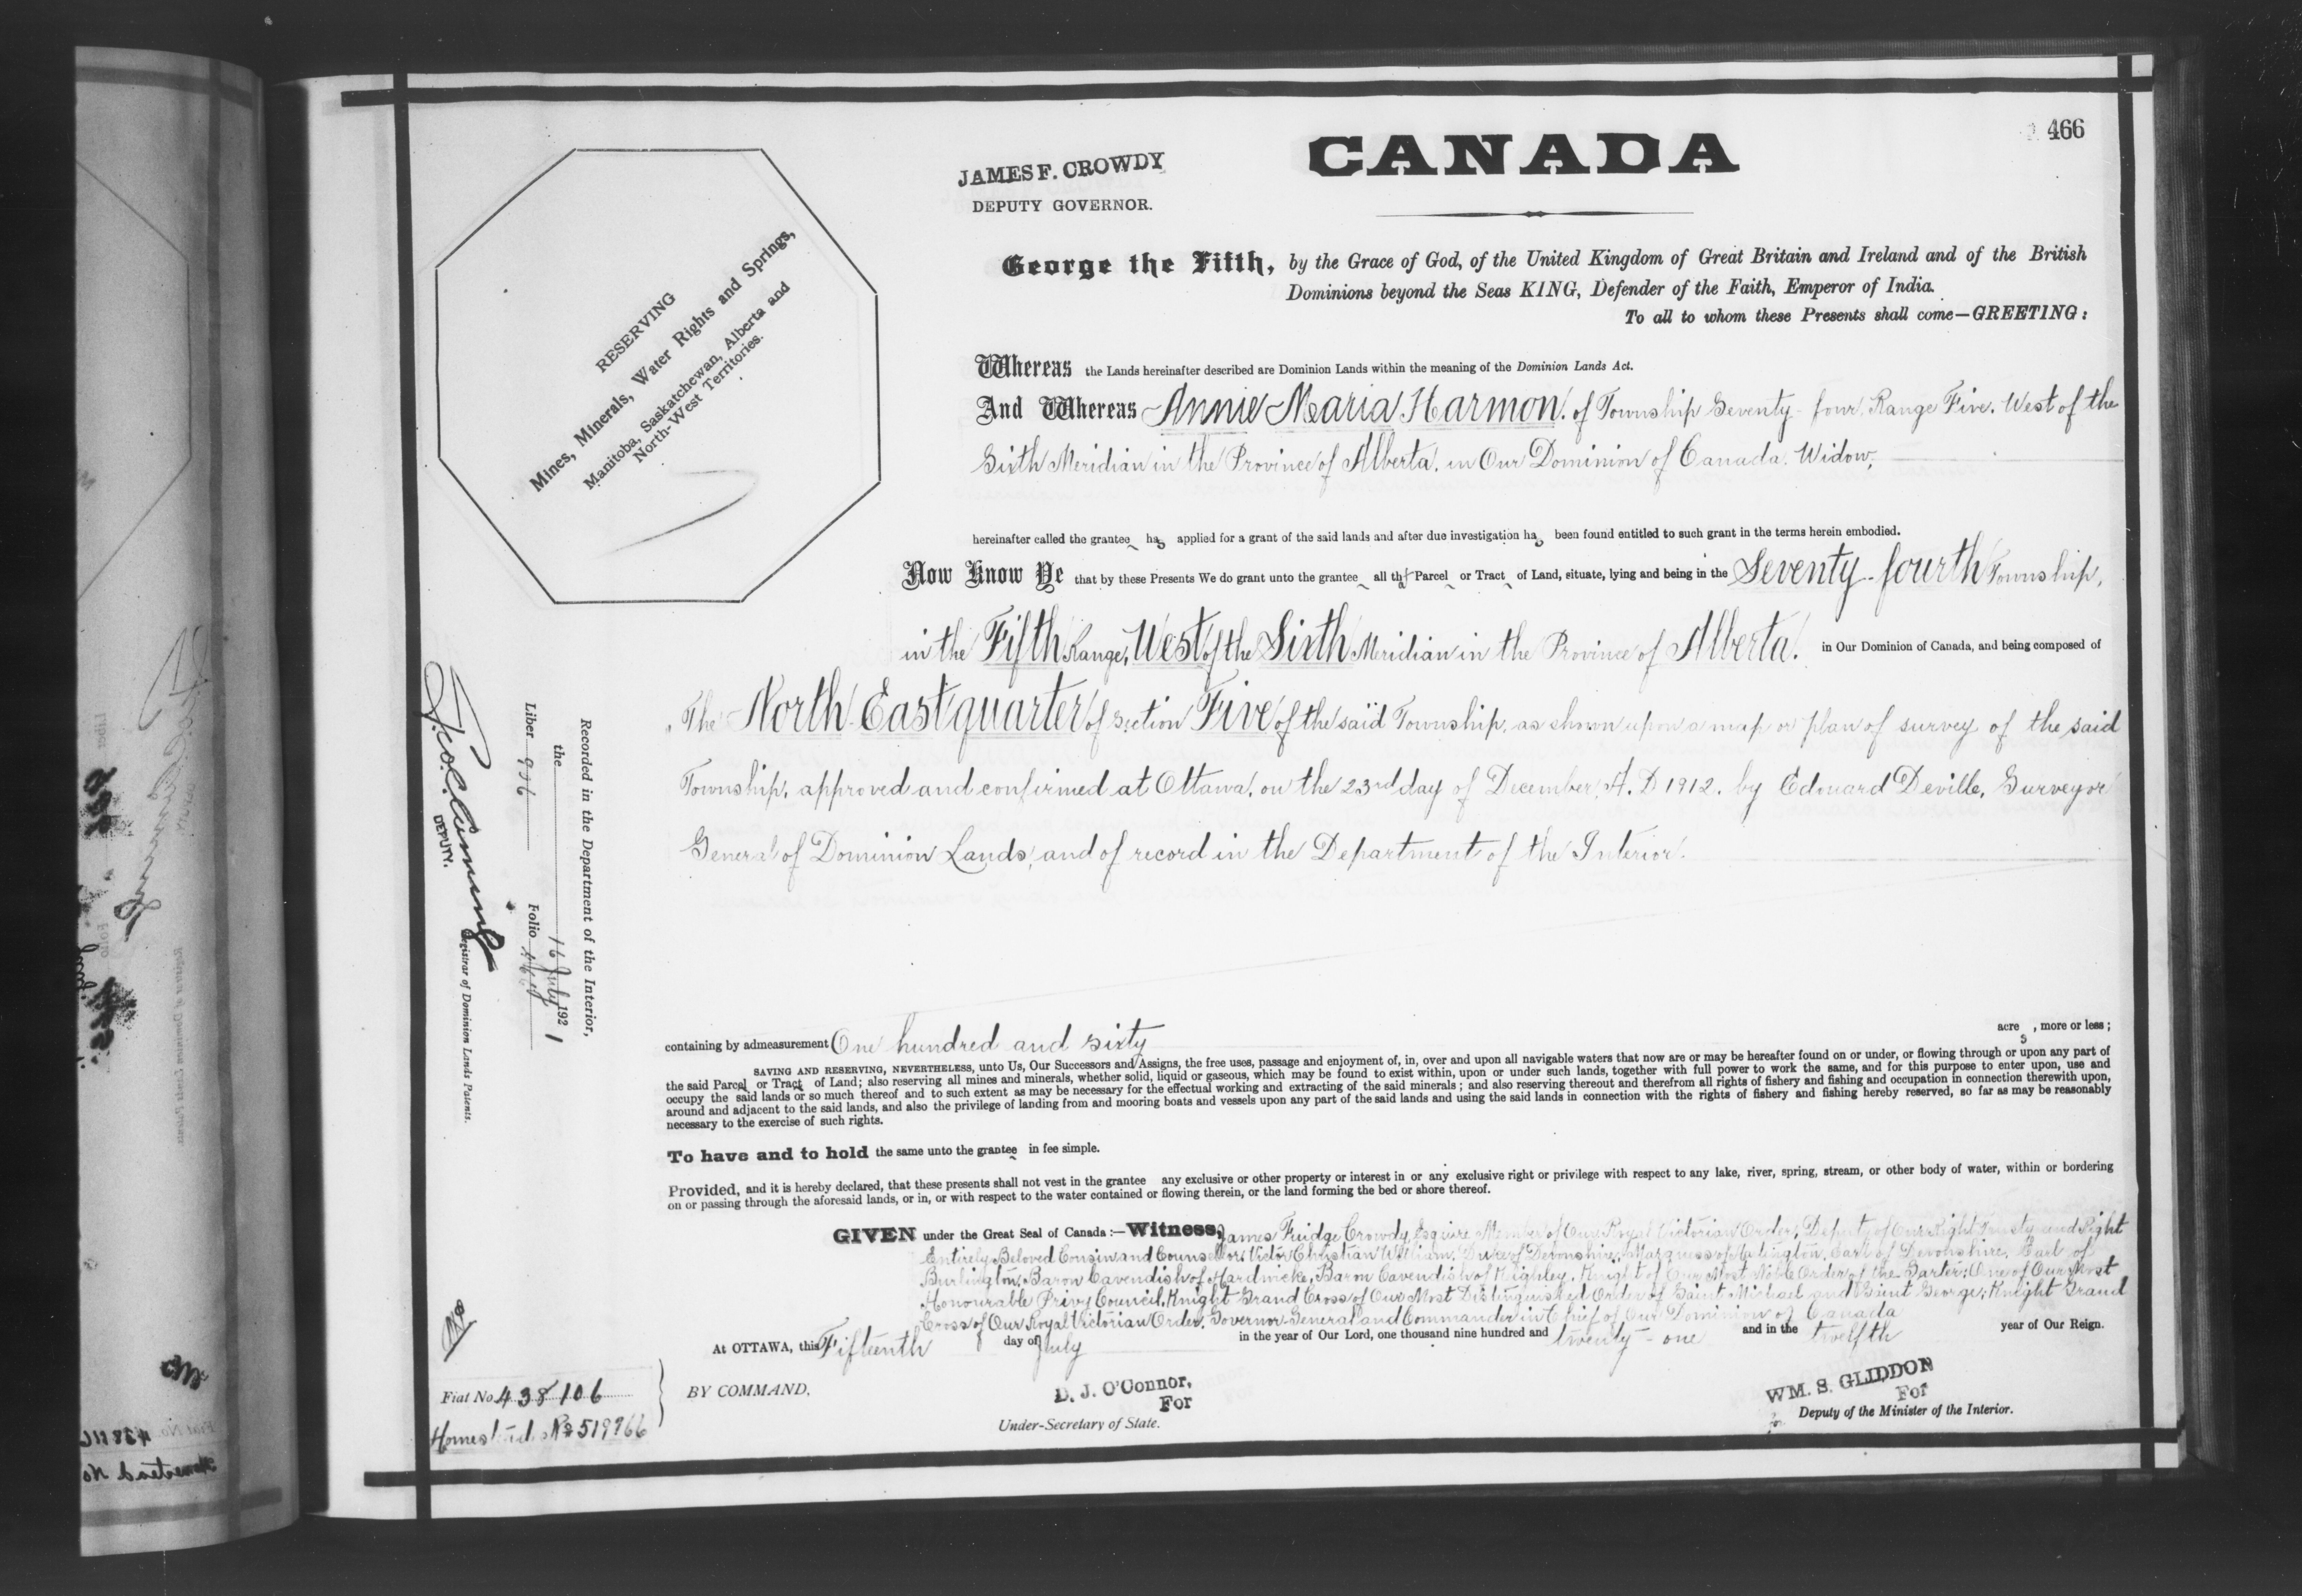 466
CANADA
JAMES F. CROWDY
DEPUTY GOVERNOR.
RESERVING
Mines, Minerals, Water Rights and Springs,
Manitoba, Saskatchewan, Alberta and
North-West Territories.
George the Fifth, by the Grace of God, of the United Kingdom of Great Britain and Ireland and of the British
Dominions beyond the Seas KING, Defender of the Faith, Emperor of India.
To all to whom these Presents shall come—GREETING:
Whereas the Lands hereinafter described are Dominion Lands within the meaning of the Dominion Lands Act.
And Whereas Annie Maria Harmon. of Township Seventy-four, Range Five, West of the
Sixth Meridian in the Province of Alberta, in Our Dominion of Canada. Widow,
hereinafter called the grantee has applied for a grant of the said lands and after due investigation has been found entitled to such grant in the terms herein embodied.
Now Know Ye that by these Presents We do grant unto the grantee all that Parcel or Tract of Land, situate, lying and being in the Seventy-fourth Township,
in the Fifth Range, West of the Sixth Meridian in the Province of Alberta. in Our Dominion of Canada, and being composed of
The North East quarter of Section Five of the said Township, as shown upon a map or plan of survey of the said
Township, approved and confirmed at Ottawa, on the 23rd day of December, A.D 1912. by Edouard Deville, Surveyor
General of Dominion Lands, and of record in the Department of the Interior.
containing by admeasurement One hundred and sixty acres, more or less;
SAVING AND RESERVING, NEVERTHELESS, unto Us, Our Successors and Assigns, the free uses, passage and enjoyment of, in, over and upon all navigable waters that now are or may be hereafter found on or under, or flowing through or upon any part of
the said Parcel or Tract of Land; also reserving all mines and minerals, whether solid, liquid or gaseous, which may be found to exist within, upon or under such lands, together with full power to work the same, and for this purpose to enter upon, use and
occupy the said lands or so much thereof and to such extent as may be necessary for the effectual working and extracting of the said minerals; and also reserving thereout and therefrom all rights of fishery and fishing and occupation in connection therewith upon,
around and adjacent to the said lands, and also the privilege of landing from and mooring boats and vessels upon any part of the said lands and using the said lands in connection with the rights of fishery and fishing hereby reserved, so far as may be reasonably
necessary to the exercise of such rights.
To have and to hold the same unto the grantee in fee simple.
Provided, and it is hereby declared, that these presents shall not vest in the grantee any exclusive or other property or interest in or any exclusive right or privilege with respect to any lake, river, spring, stream, or other body of water, within or bordering
on or passing through the aforesaid lands, or in, or with respect to the water contained or flowing therein, or the land forming the bed or shore thereof.
GIVEN under the Great Seal of Canada:—Witness, James Fuidge Crowdy, Esquire Member of Our Royal Victorian Order, Deputy of Our Right Trusty and Right
Entirely Beloved Cousin and Counsellor: Victor Christian William, Duke of Devonshire, Marquess of Hartington, Earl of Devonshire, Earl of
Burlington, Baron Cavendish of Hardwicke, Baron Cavendish of Keighley, Knight of Our Most Noble Order of the Garter; One of Our Most
Honourable Privy Council, Knight Grand Cross of Our Most Distinguished Order of Saint Michael and Saint George; Knight Grand
Cross of Our Royal Victorian Order, Governor General and Commander in Chief of Our Dominion of Canada
At OTTAWA, this Fifteenth day of July in the year of Our Lord, one thousand nine hundred and twenty-one and in the twelfth year of Our Reign.
BY COMMAND,
D. J. O'Connor,
For
Under-Secretary of State.
WM. S. GLIDDON
For
Deputy of the Minister of the Interior.
Recorded in the Department of the Interior,
the 16 July 1921
Liber 996 Folio 466
DEPUTY. Registrar of Dominion Lands Patents.
Fiat No. 438106
Homestead No 519766